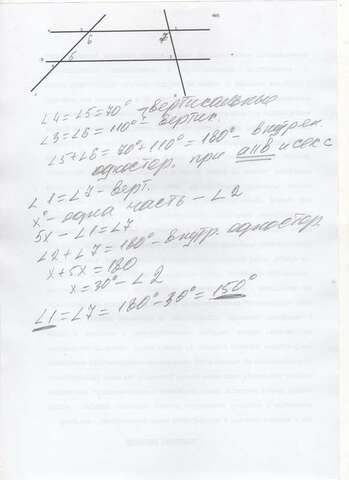 6
7
5
∠4=∠5=70° - вертикальные
∠3=∠6=110° - вертик.
∠5+∠6=70°+110°=180° - внутрен
одностор. при a||B и сек c
∠1=∠7 - верт.
x° - одна часть - ∠2
5x - ∠1=∠7
∠2+∠7=180° - внутр. одностор.
x+5x=180
x=30° - ∠2
∠1=∠7=180°-30°=150°